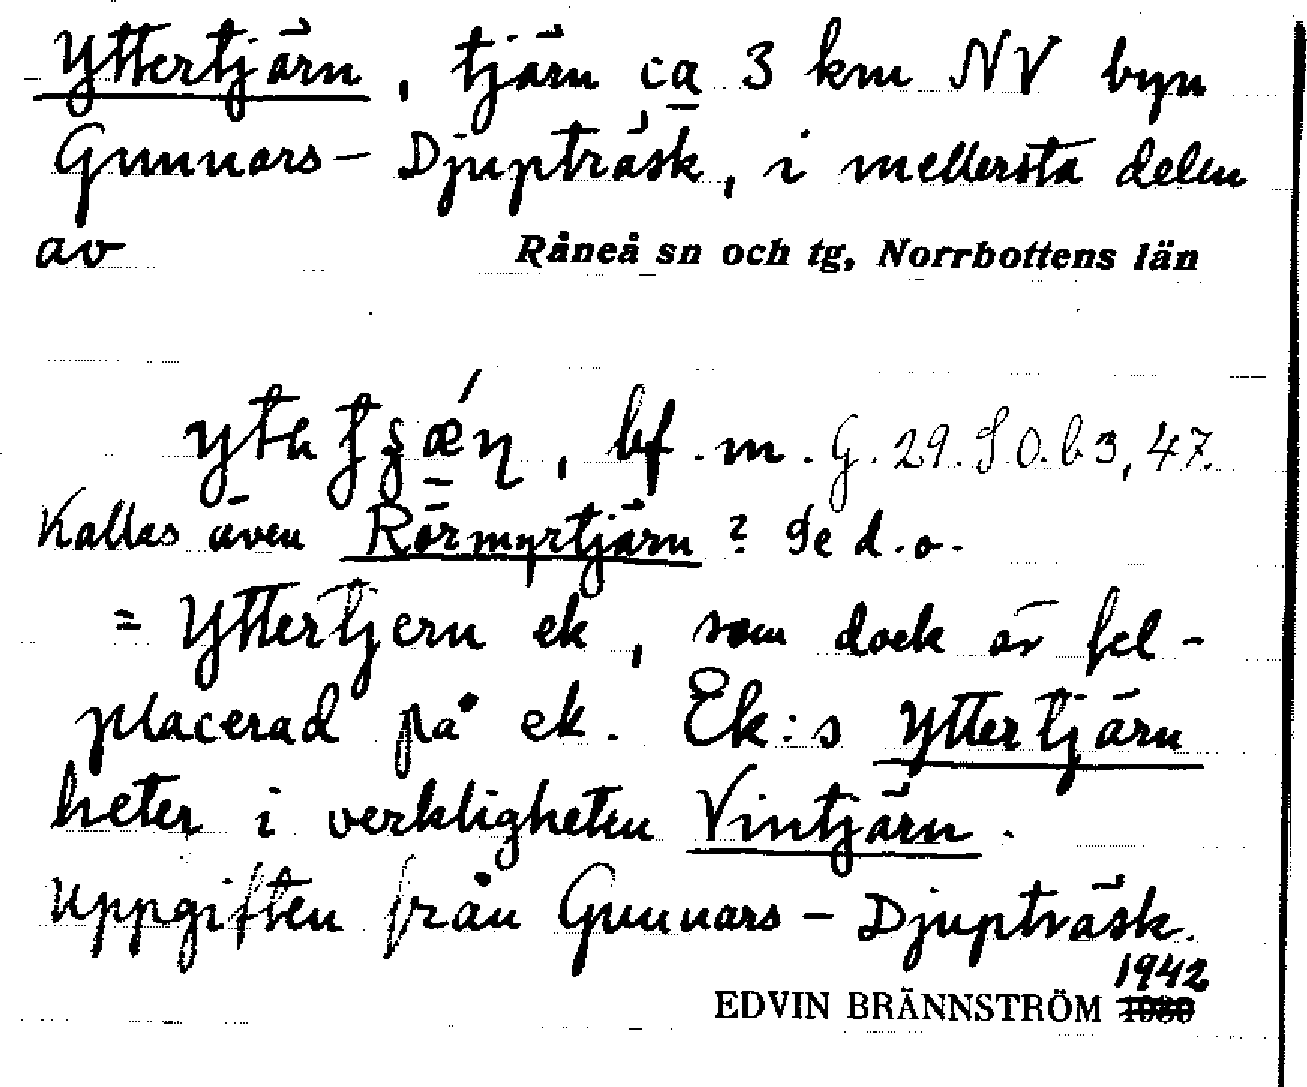 Yttertjärn, tjärn ca 3 km NV byn
Gunnars-Djupträsk, i mellersta delen
av Råneå sn och tg, Norrbottens län
bf. m. G. 29. S O. b 3, 47.
Kallas även Rörmyrtjärn? Se d.o.
= Yttertjern ek, som dock är fel-
placerad på ek. Ek:s Yttertjärn
heter i verkligheten Vintjärn.
Uppgiften från Gunnars-Djupträsk.
1942
EDVIN BRÄNNSTRÖM